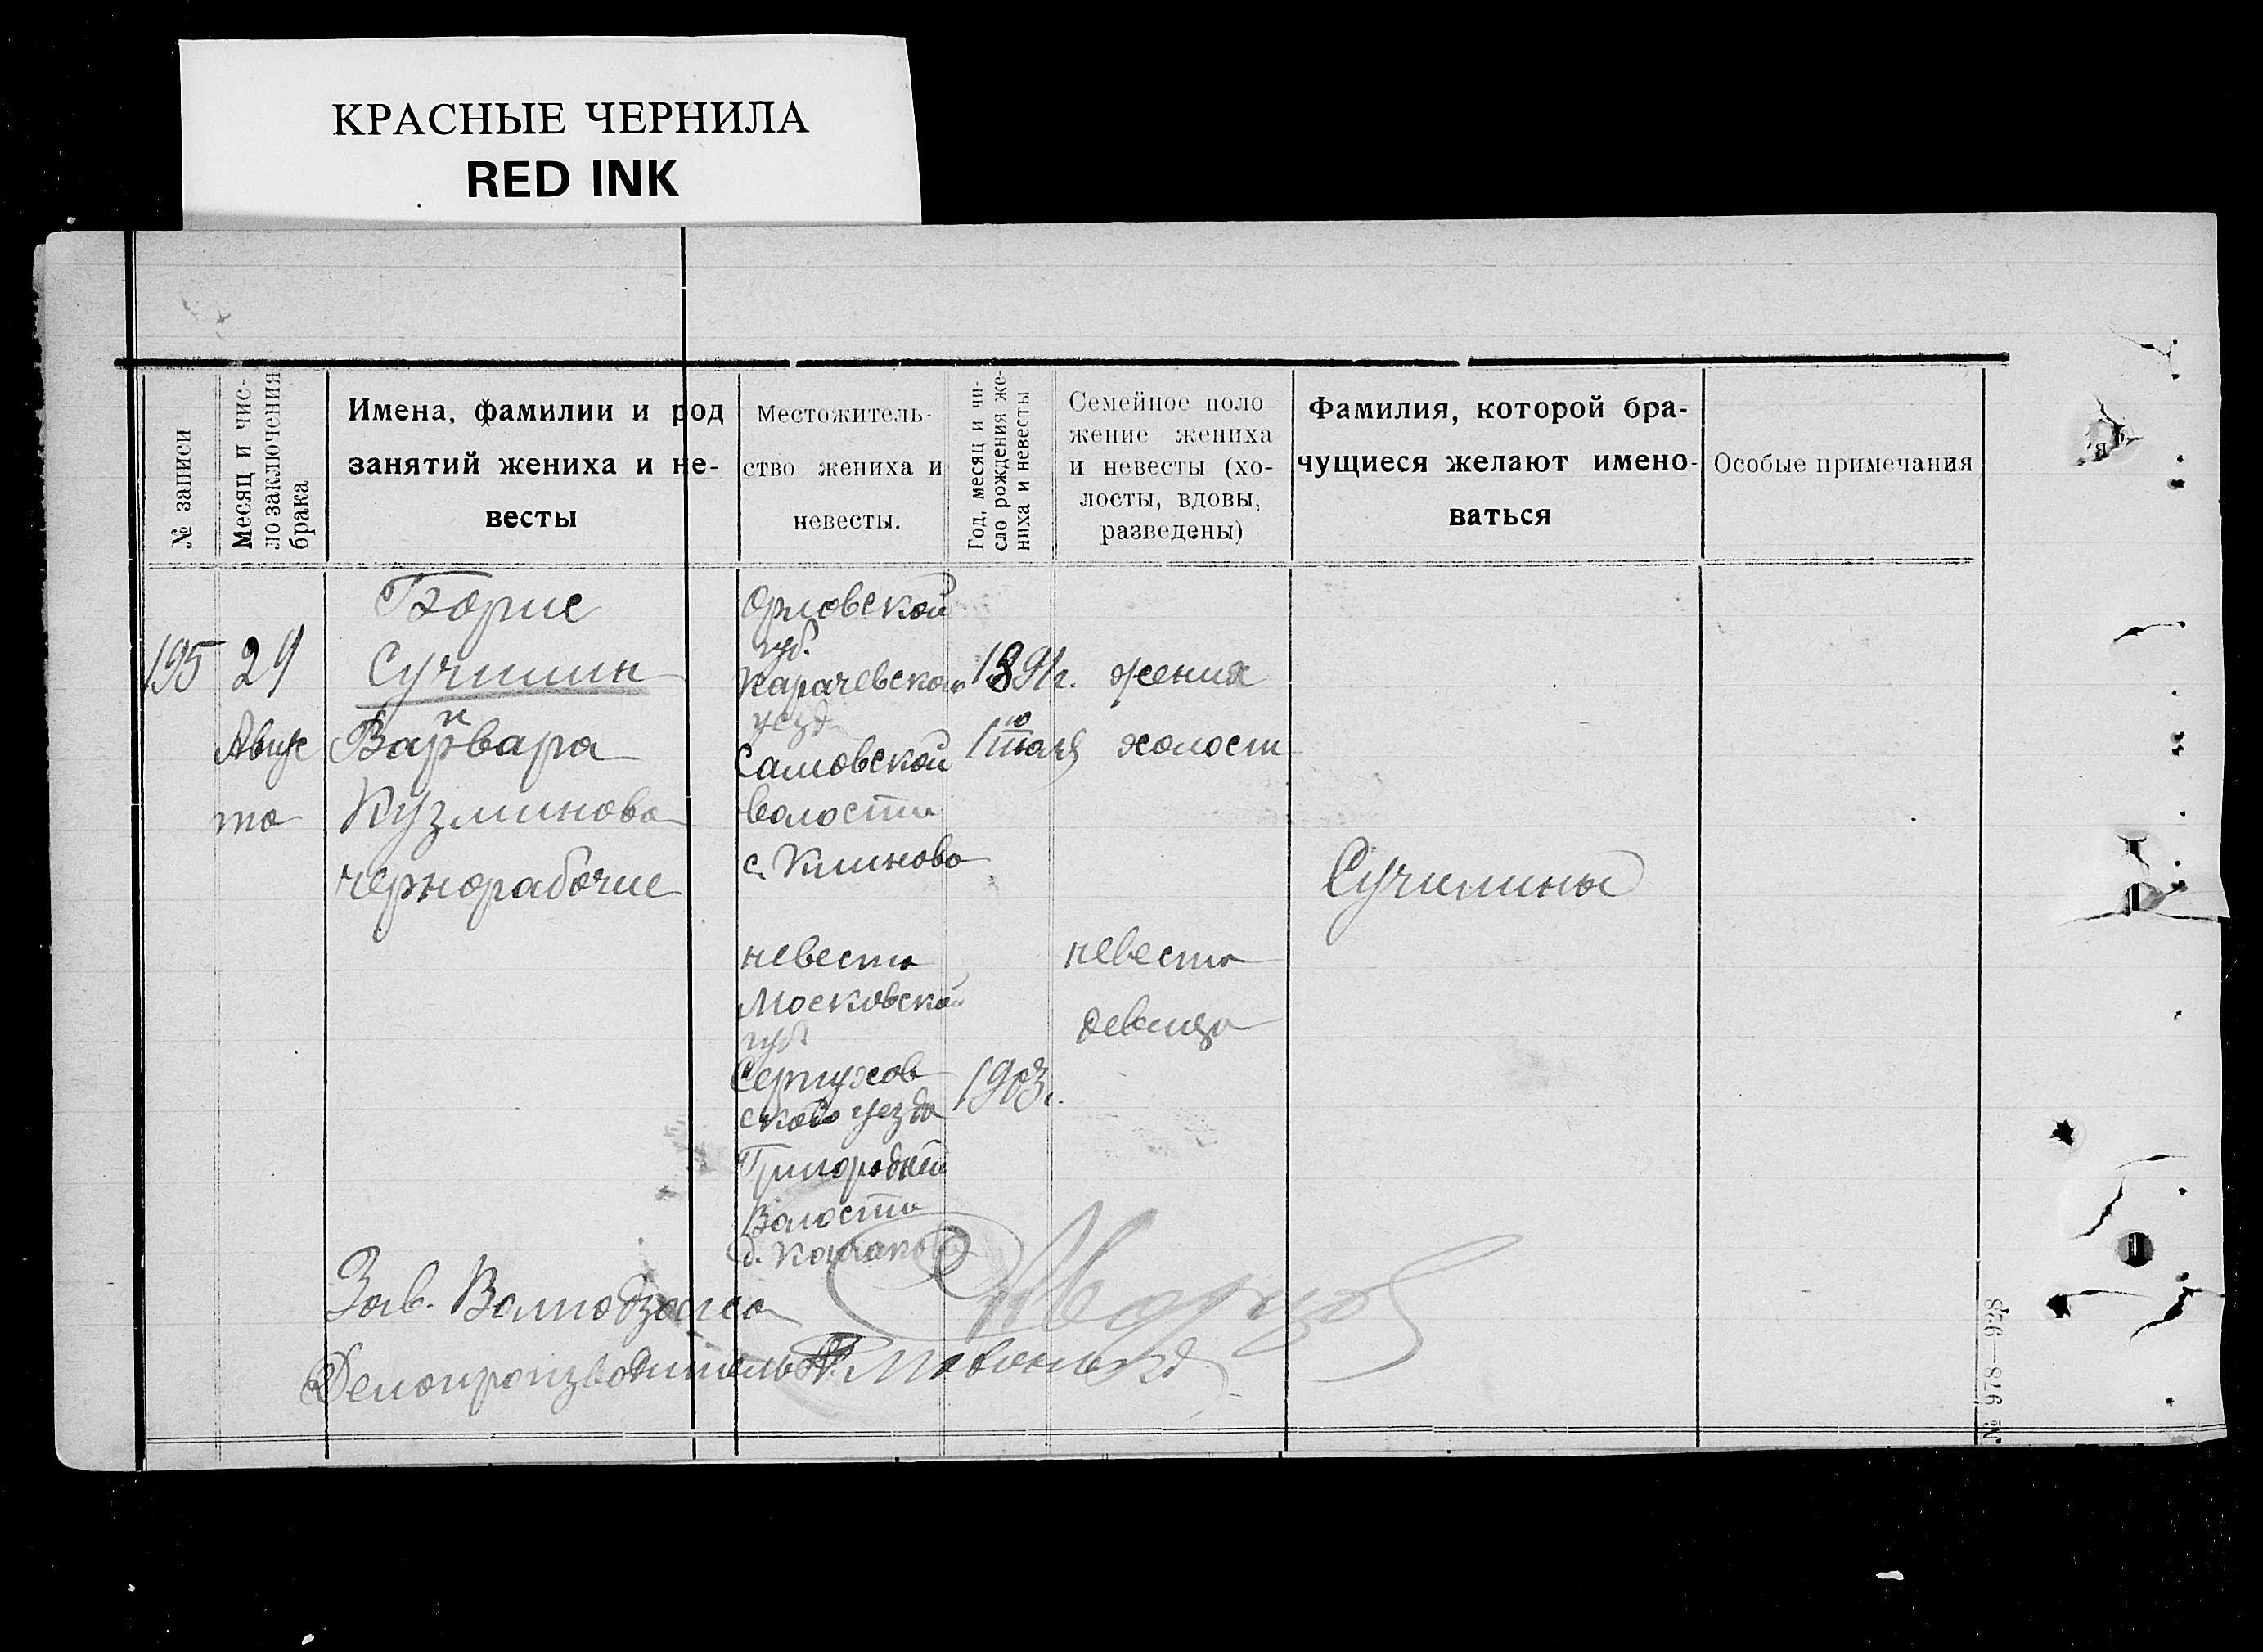 КРАСНЫЕ ЧЕРНИЛА
RED INK
№ записи
Месяц и чис-
ло заключения
брака
Имена, фамилии и род
занятий жениха и не-
весты
Местожитель-
ство жениха и
невесты.
Год, месяц и чи-
сло рождения же-
ниха и невесты
Семейное поло
жение жениха
и невесты (хо-
лосты, вдовы,
разведены)
Фамилия, которой бра-
чущиеся желают имено-
ваться
Особые примечания
195
29
Авгус
та
Борис
Сучилин
и
Варвара
Кузминова
чернорабочие
Орловской
губ.
Карачевского
уезд
Самовской
волости
с. Клиново
невеста
Московской
губ.
Серпухов
ского уезда
волости
1891г.
1 июля
1903г.
жених
холост
невеста
девица
Сучилины
Зав.
Делопроизводитель
№ 978—928